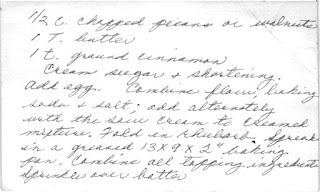 1/2 C. chopped pecans or walnuts
1 T. butter
1 t. ground cinnamon
Cream sugar & shortening.
Add egg. Combine flour, baking
soda & salt; add alternately
with the sour cream to creamed
mixture. Fold in rhubarb. Spread
in a greased 13x9x2" baking
pan. Combine all topping ingredients
sprinkle over batter